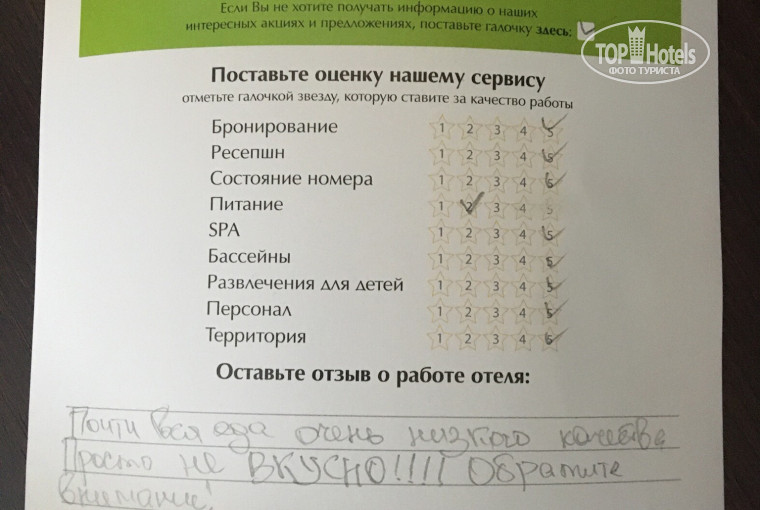 Если Вы не хотите получать информацию о наших
интересных акциях и предложениях, поставьте галочку здесь:
TOP Hotels
ФОТО ТУРИСТА
Поставьте оценку нашему сервису
отметьте галочкой звезду, которую ставите за качество работы
Бронирование 1 2 3 4 5
Ресепшн 1 2 3 4 5
Состояние номера 1 2 3 4 5
Питание 1 2 3 4 5
SPA 1 2 3 4 5
Бассейны 1 2 3 4 5
Развлечения для детей 1 2 3 4 5
Персонал 1 2 3 4 5
Территория 1 2 3 4 5
Оставьте отзыв о работе отеля:
Почти вся еда очень низкого качества
Просто не ВКУСНО!!!! Обратите
внимание!